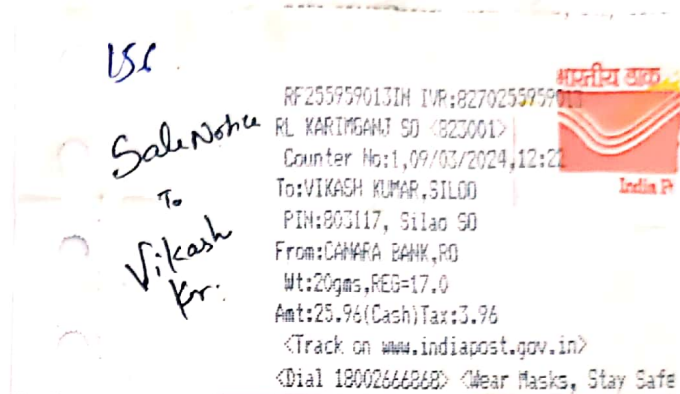 Sale Notice
To
Vikash
Kr.
भारतीय डाक
RF255959013IN IVR:8270255959013
RL KARIMGANJ SO <823001>
Counter No:1,09/03/2024,12:22
To:VIKASH KUMAR,SILOO
PIN:803117, Silao SO
From:CANARA BANK,RO
Wt:20gms,REG=17.0
Amt:25.96(Cash)Tax:3.96
<Track on www.indiapost.gov.in>
<Dial 18002666868> <Wear Masks, Stay Safe
India